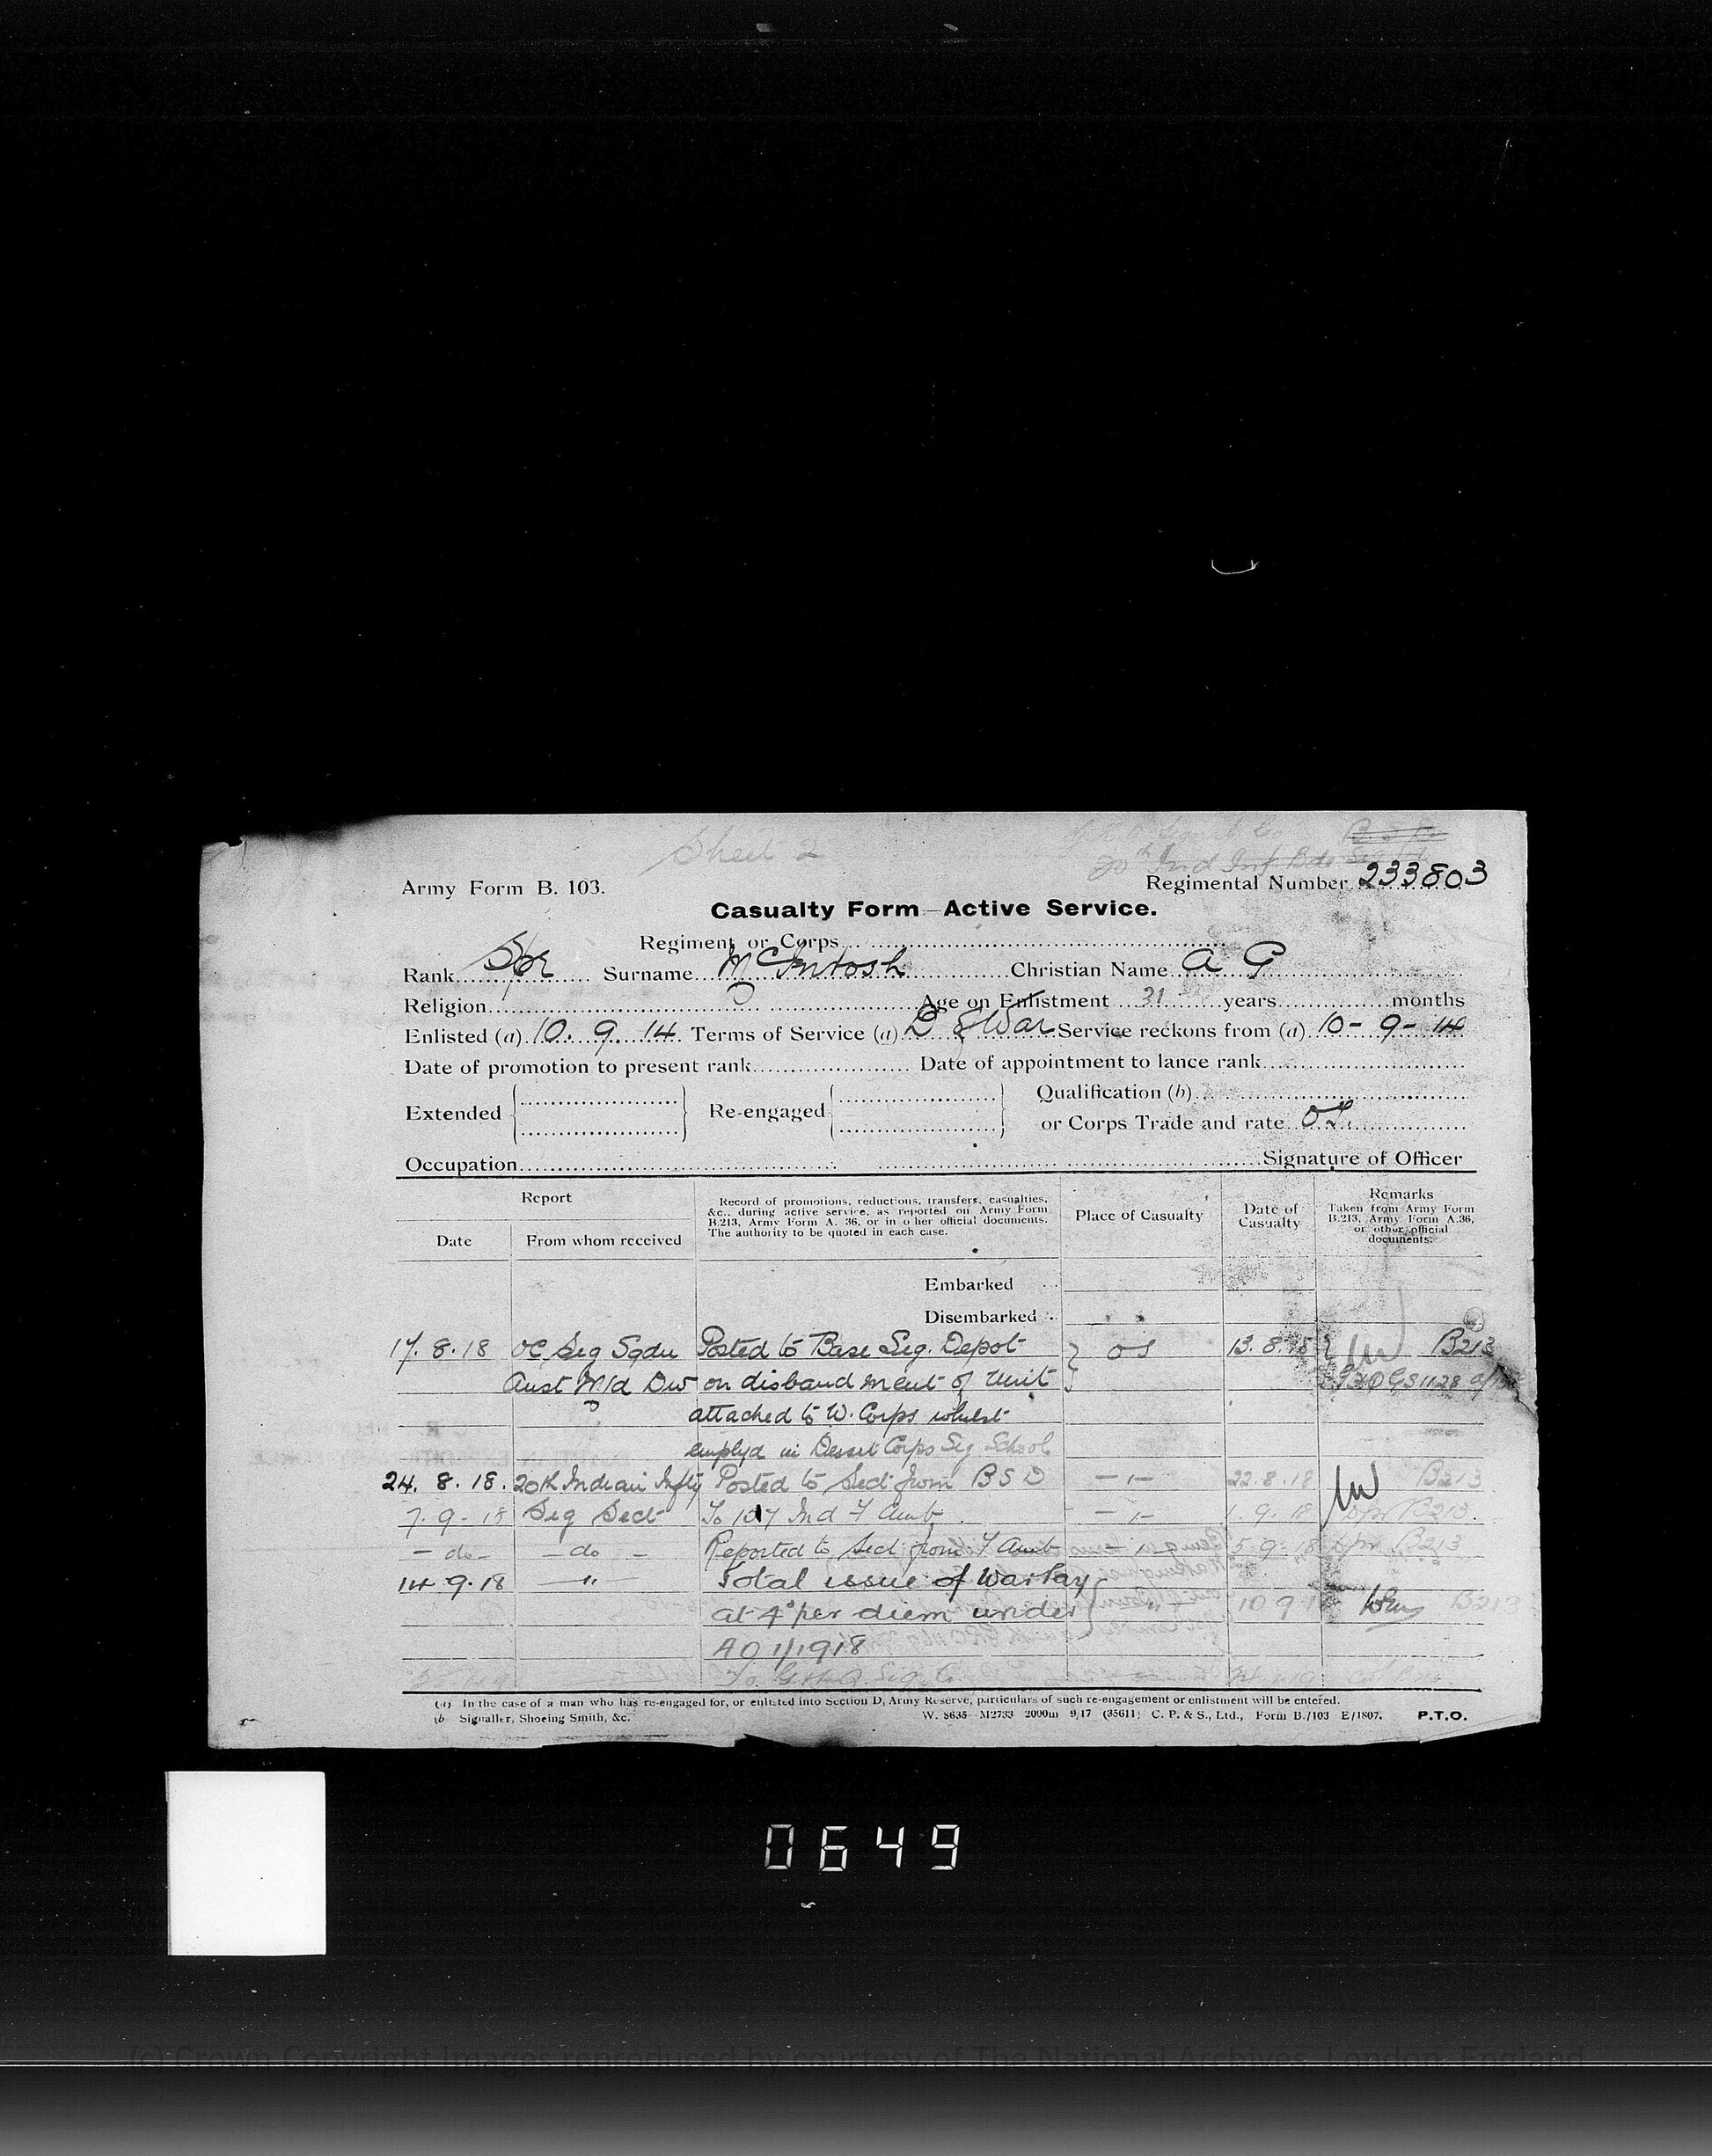 Sheet 2
20th Ind Inf. Bde
Army Form B. 103.
Regimental Number 233803
Casualty Form—Active Service.
Regiment or Corps
Rank Spr Surname McIntosh Christian Name A G
Religion Age on Enlistment 31 years months
Enlisted (a) 10. 9. 14 Terms of Service (a) D of War Service reckons from (a) 10-9-14
Date of promotion to present rank Date of appointment to lance rank
Extended Re-engaged Qualification (b)
or Corps Trade and rate
Occupation Signature of Officer
Report
Date From whom received
Record of promotions, reductions, transfers, casualties,
&c., during active service, as reported on Army Form
B.213, Army Form A. 36, or in other official documents.
The authority to be quoted in each case.
Place of Casualty
Date of
Casualty
Remarks
Taken from Army Form
B.213, Army Form A.36,
or other official
documents.
Embarked
Disembarked
17. 8. 18 OC Sig Sqdn Posted to Base Sig. Depot 13. 8. 18 B213
Aust M/d Div on disbandment of Unit
attached to W. Corps whilst
emplyd in Desert Corps Sig School
24. 8. 18. 20th Indian Infty Posted to Sect from BSD 22. 8. 18 B213
7. 9. 18 Sig Sect To 107 Ind F Amb. 1. 9. 18 Spr B213.
- do - - do - Reported to Sect from F Amb 5. 9. 18 Spr B213
14 9. 18 — " Total issue of War Pay
at 4d per diem under 10 9 B213
AO 1/1918
To G.H.Q. Sig. Co
(a) In the case of a man who has re-engaged for, or enlisted into Section D, Army Reserve, particulars of such re-engagement or enlistment will be entered.
(b Signaller, Shoeing Smith, &c. W. 8635—M2733 2000m 9/17 (35611) C. P. & S., Ltd., Form B./103 E/1807. P.T.O.
0649
(c) Crown Copyright Images reproduced by courtesy of The National Archives, London, England.